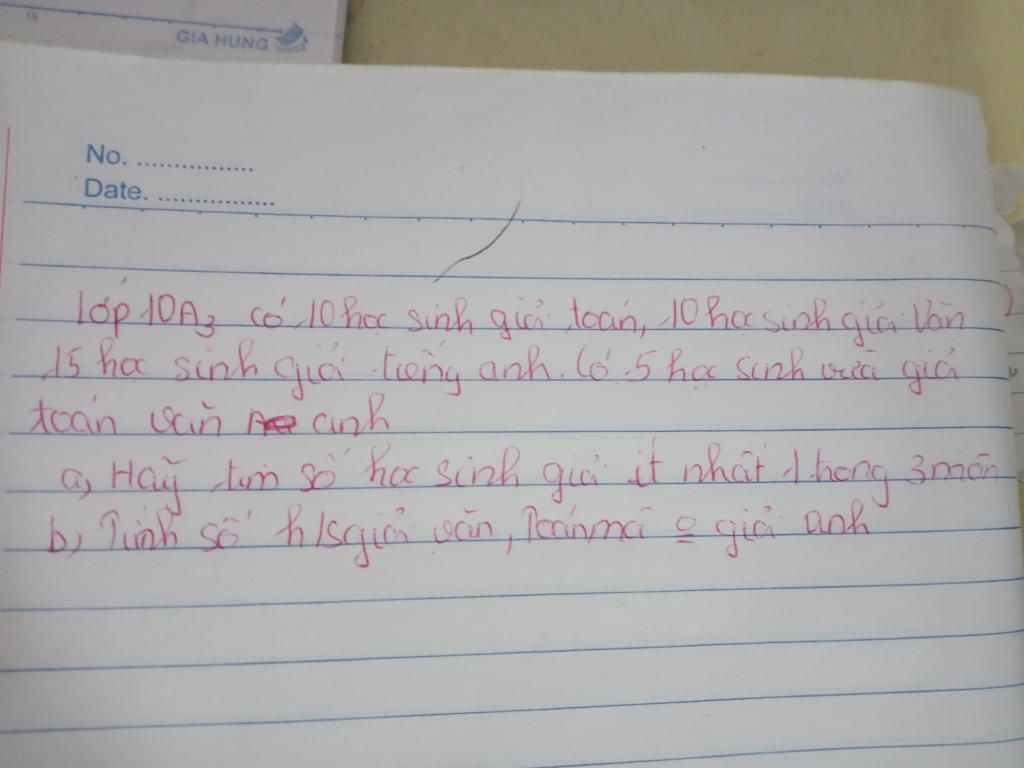 15
GIA HUNG
No. ................
Date. ................
lớp 10A3 có 10 học sinh giỏi toán, 10 học sinh giỏi Văn
15 học sinh giỏi tiếng anh. Có 5 học sinh vừa giỏi
toán văn anh
a, Hãy tìm số học sinh giỏi ít nhất 1 tong 3 môn
b, Tính số h/s giỏi văn, Toán mà giỏi anh